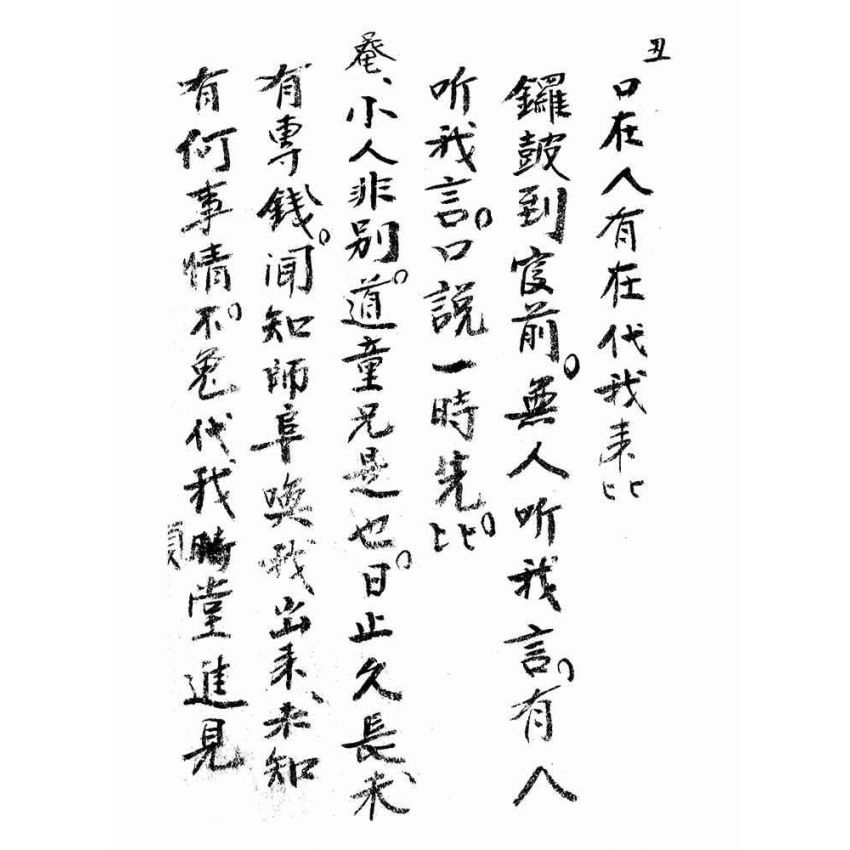 丑
口在人有在代我来比
鑼鼓到官前。無人听我言。有人
听我言。口說一時先比。
奄、小人非別。道童兄是也。日止久長未
有專錢。闻知師阜喚我出来、未知
有何事情。不兔代我勝堂進見